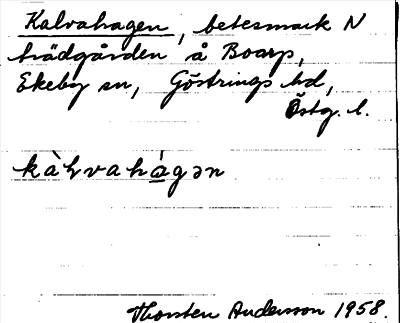 Kalvahagen, betesmark N
trädgården å Boarp,
Ekeby sn, Göstrings hd,
Östg. l.
kàɫvahágən
Thorsten Andersson 1958.